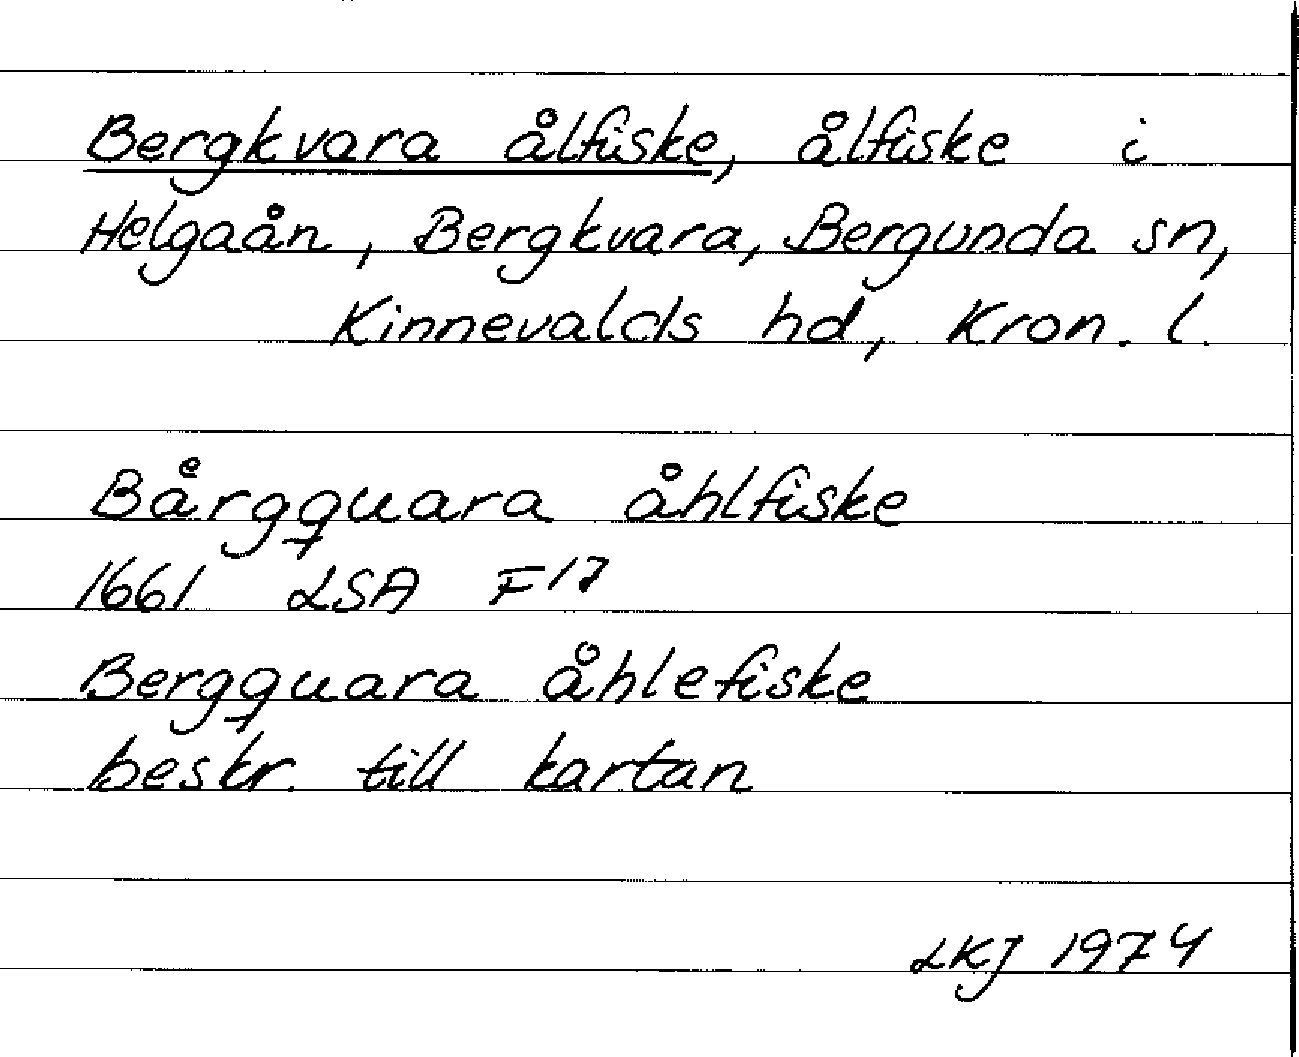 Bergkvara ålfiske, ålfiske i
Helgaån, Bergkvara, Bergunda sn,
Kinnevalds hd, Kron. l.
Baͤrgquara åhlfiske
1661 LSA F17
Bergquara åhlefiske
beskr. till kartan
LKJ 1974